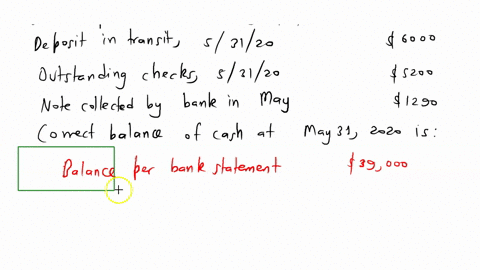 Deposit in transit, 5/31/20 $6000
Outstanding checks, 5/31/20 $5200
Note collected by bank in May $1290
Correct balance of cash at May 31, 2020 is:
Balance per bank statement $39,000